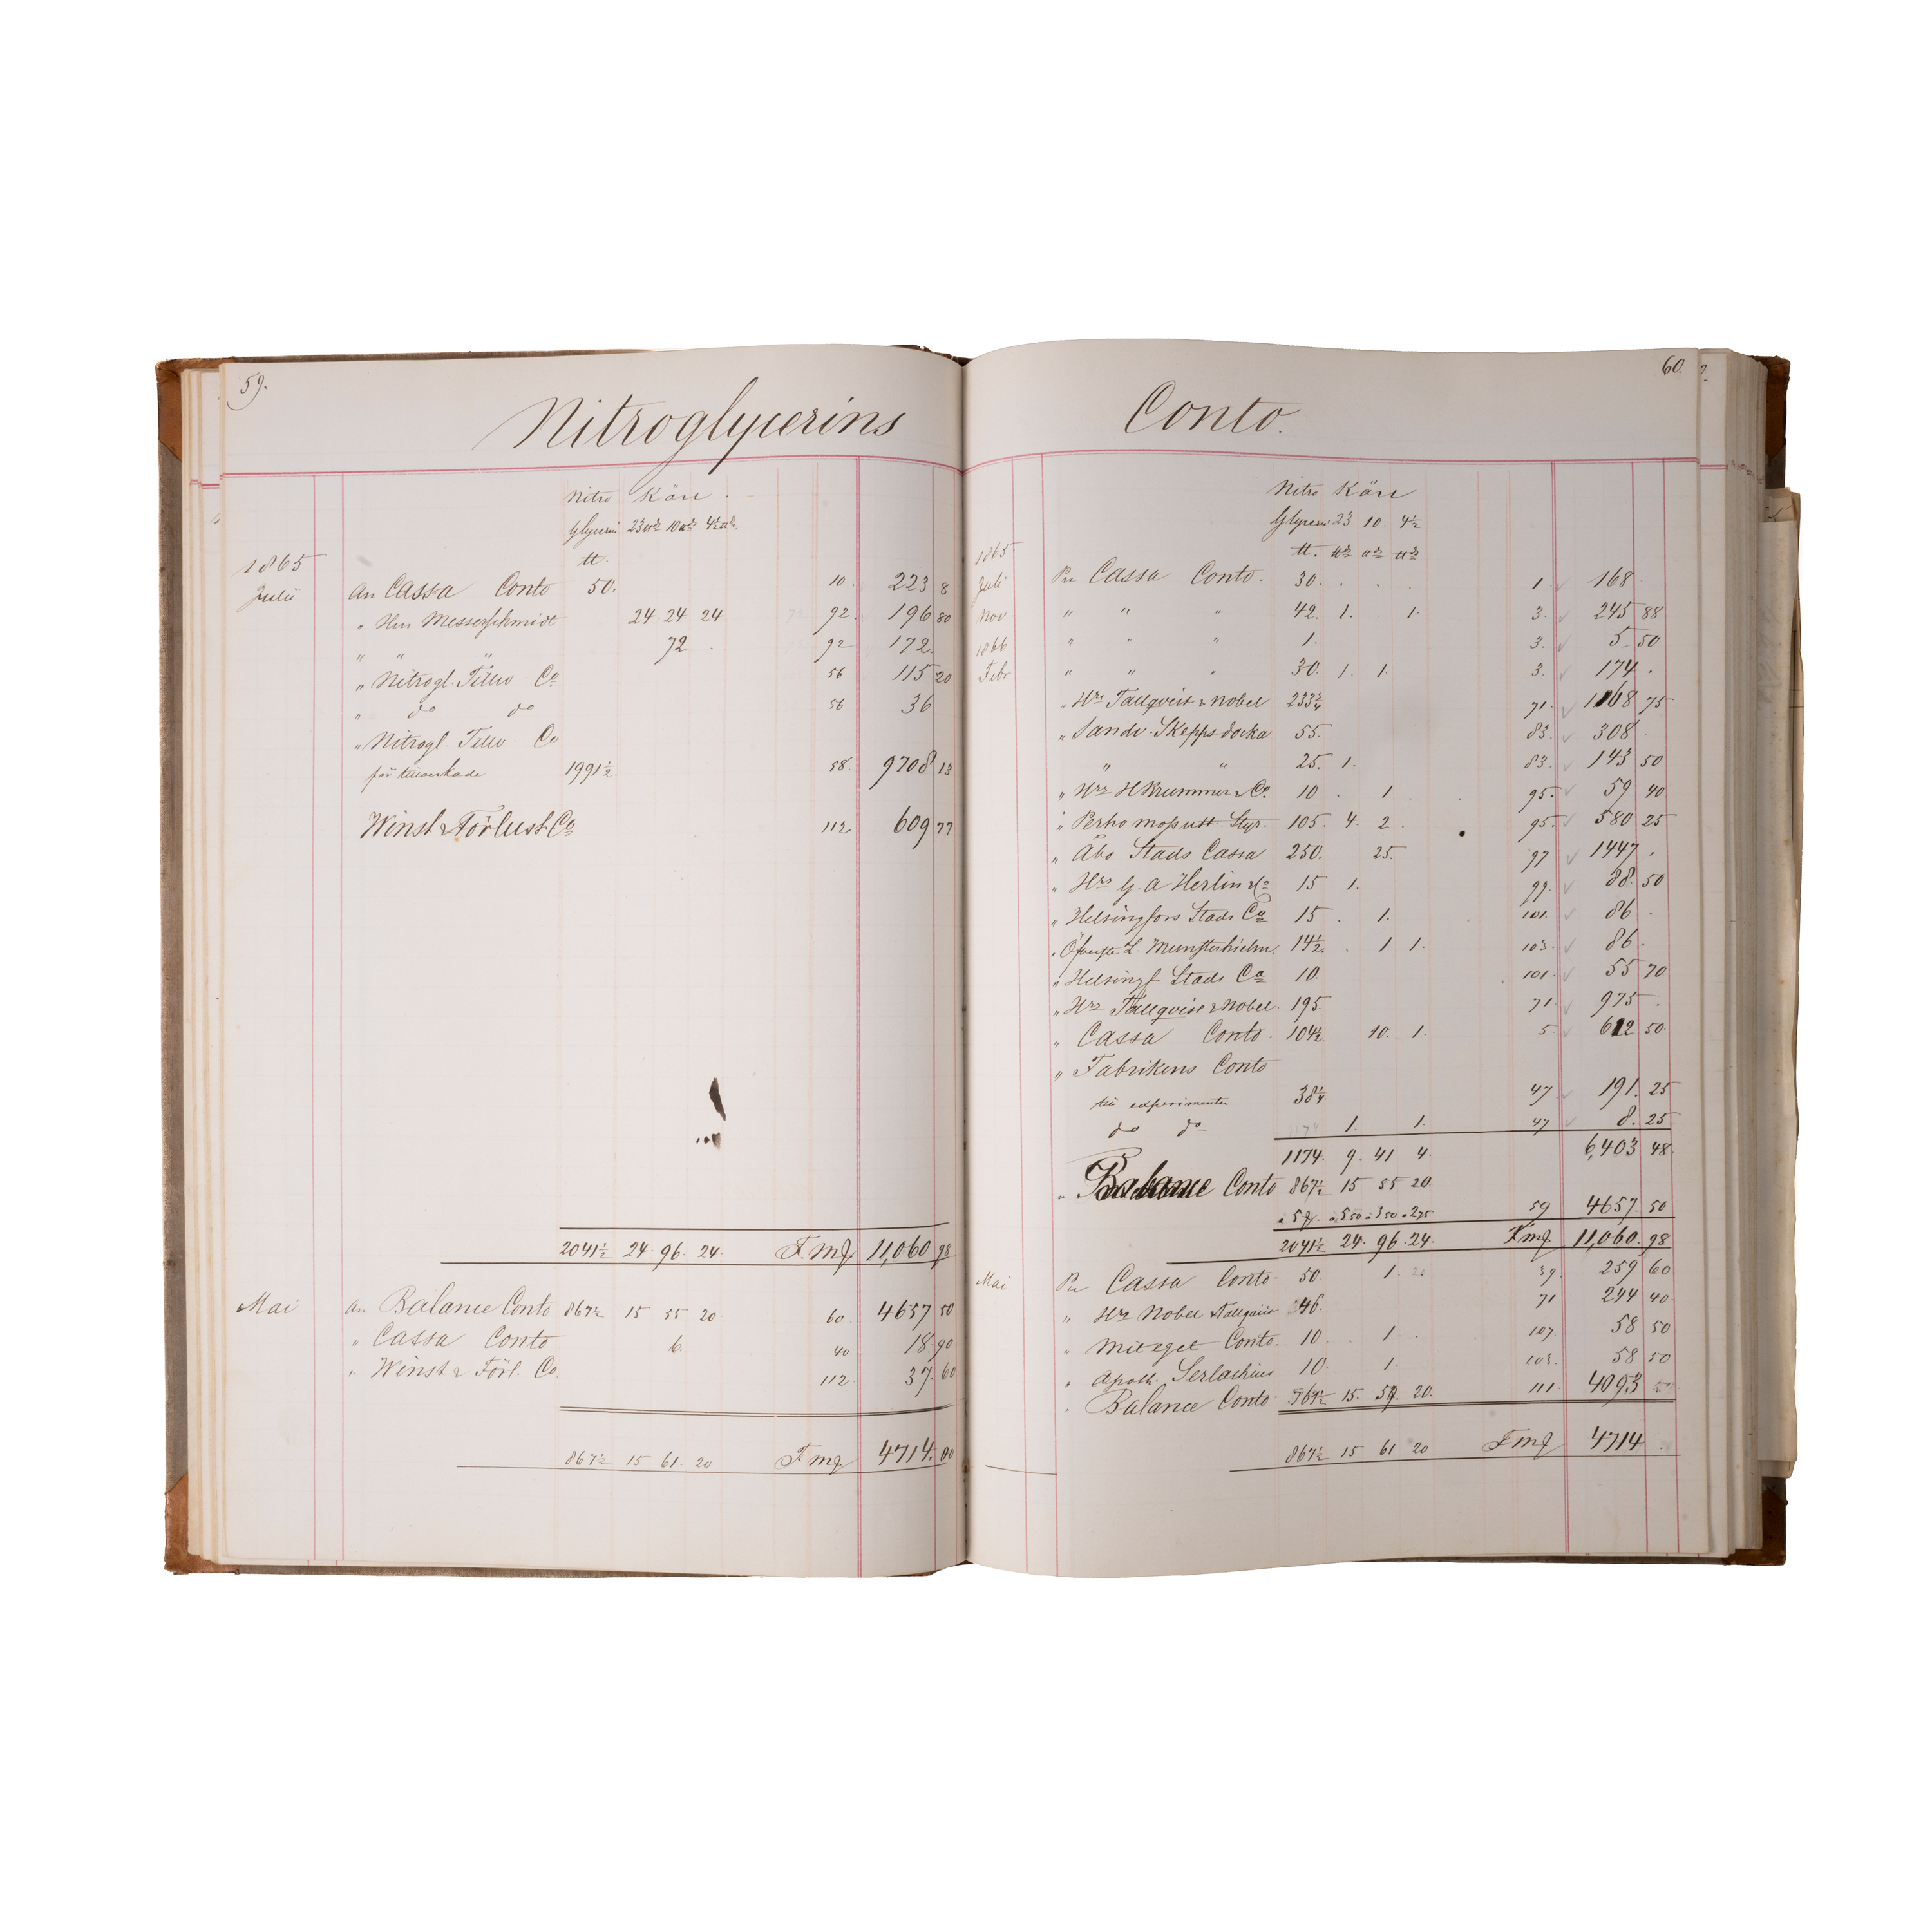 59.
Nitroglycerins
Nitro Kärl
Glycerin 23 10 4½
1865 tt.
Julii an Cassa Conto 50. 10. 223 8
" Hrr Messerschmidt 24 24 24 92. 196 80
" " " 72 92 172.
" Nitrogl. Tillv. Co 56 115 20
" do do 56 36
" Nitrogl. Tillv. Co
för tillverkade 1991½ 58. 9708 13
Winst & Förlust Co 112 609 77
2041½ 24. 96. 24. F.mg 11,060 98
Mai an Balance Conto 867½ 15 55 20. 60. 4657 50
" Cassa Conto 6. 40 18.90
" Winst & Förl. Co 112 37. 60
867½ 15 61. 20 F.mg 4714. 00
60.
Conto.
Nitro Kärl
Glycerin 23 10. 4½
1865 tt.
Juli Pr Cassa Conto. 30. 1. 168
Nov " " " 42. 1. 1. 3. 245 88
1866 " " " 1. 3. 5 50
Febr " " " 30. 1. 1. 3. 174.
" Hrr Tallqvist & Nobel 233¾ 71. 1168 75
" Sandv. Skeppsdocka 55. 83. 308
" " 25. 1. 83. 143 50
" Hrr H Krummer & Co. 10. 1 95. 59 40
" Perho mosutt. Styr. 105. 4. 2. 95. 580 25
" Åbo Stads Cassa 250. 25. 97 1447.
" Hrr G. A Herlin & Co 15 1. 99. 88. 50
" Helsingfors Stads Ca 15. 1. 101. 86.
" Öfverste L. Munsterhielm. 14½. 1 1. 103. 86.
" Helsingf. Stads Ca 10. 101. 55 70
" Hrr Tallqvist & Nobel. 195. 71 975.
" Cassa Conto. 104½. 10. 1. 5 612 50
" Fabrikens Conto
till experimenter 38¼ 47 191. 25
do do 1. 1. 47 8. 25
1174. 9. 41 4. 6,403 48
" Balance Conto 867½ 15 55 20.
a 5 a 5 50 a 3 50 a 2 75 59 4657. 50
2041½ 24. 96. 24. Fmg 11,060. 98
Mai Pr Cassa Conto. 50. 1. 39. 259 60
" Hrr Nobel & Tallqvist 46. 71 244 40.
" Mitaget Conto. 10. 1. 107. 58 50
" Apoth. Serlachius 10. 1. 103. 58 50
" Balance Conto. 15. 20. 111. 4093
867½ 15 61 20 Fmg 4714.